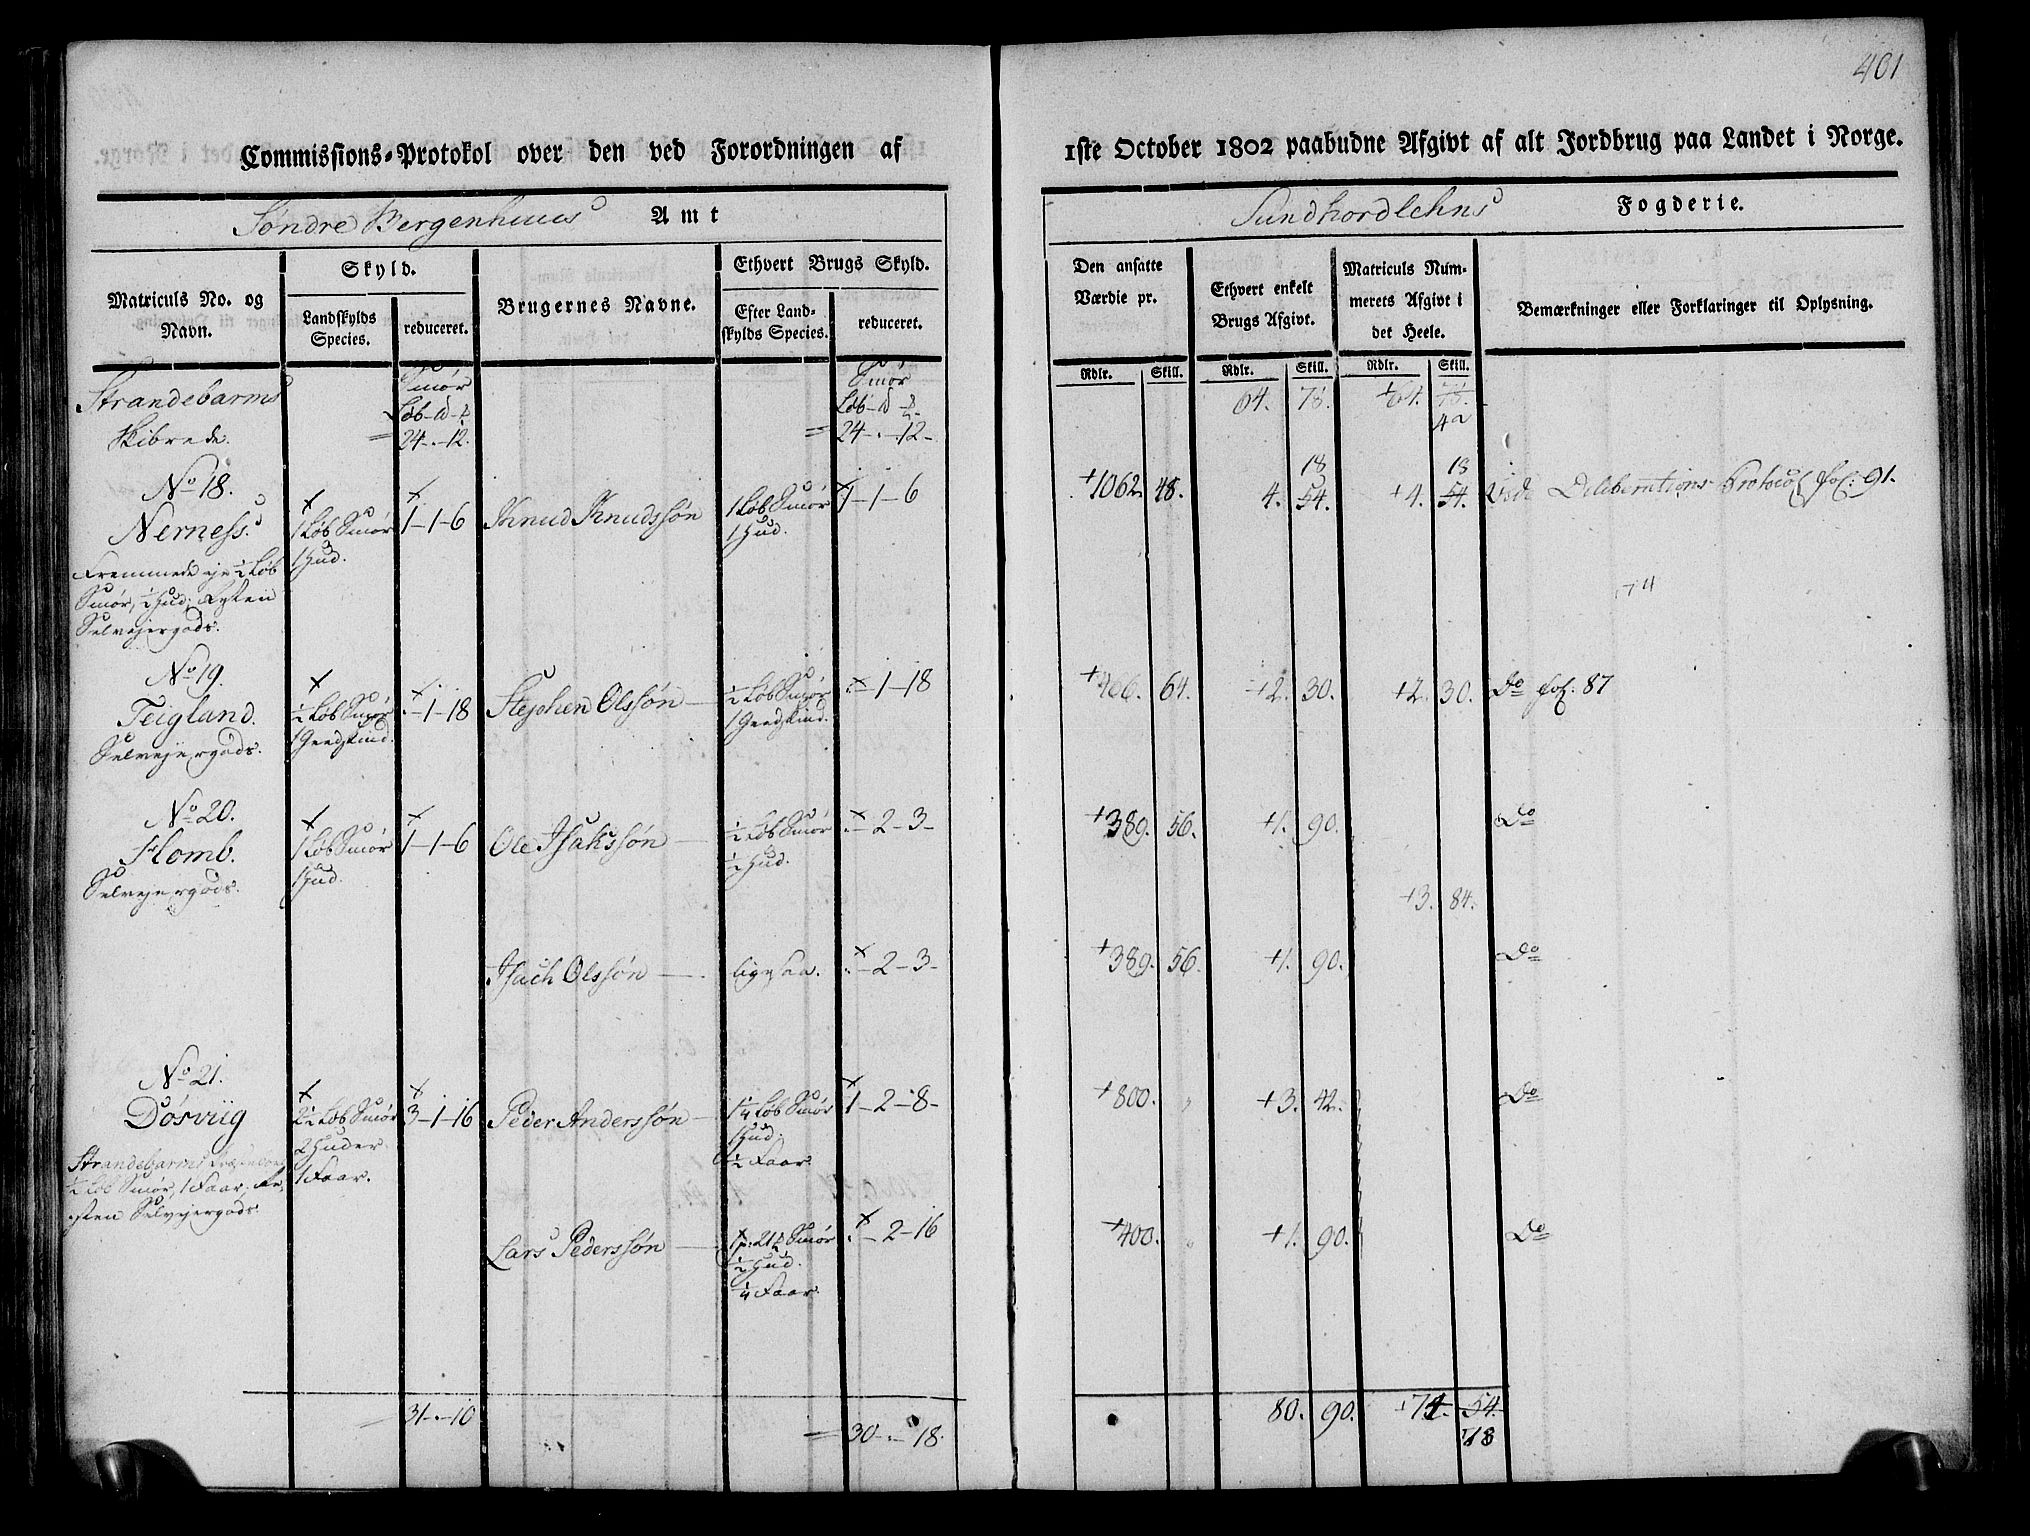 401
Commissions-Protokol over den ved Forordningen af 1ste October 1802 paabudne Afgivt af alt Jordbrug paa Landet i Norge.
Søndre Bergenhuus Amt
Sundhordlehns Fogderie.
Matriculs No. og Navn.
Skyld.
Landskylds Species.
reduceret.
Brugernes Navne.
Ethvert Brugs Skyld.
Efter Landskylds Species.
reduceret.
Den ansatte Værdie pr.
Rdlr. Skill.
Ethvert enkelt Brugs Afgivt.
Rdlr. Skill.
Matriculs Nummerets Afgivt i det Heele.
Rdlr. Skill.
Bemærkninger eller Forklaringer til Oplysning.
Strandebarms Smør Smør
Skibrede. 24-.-12. 24-.-12- 64. 78. +64. 78.
42
No 18.
Nerness. 1 Løb Smør 1-1-6 Knud Knudssøn 1 Løb Smør 1-1-6 +1062. 48. 4. 54. +4. 54. Vide Deliberations Protocol fol: 91.
18 18
1 Hud. 1 Hud.
Fremmede eje ½ Løb
Smør, ½ Hud; Resten
Selvejergods.
74
No 19.
Teigland. ½ Løb Smør .-1-18 Stephen Olssøn ½ Løb Smør .-1-18 +486. 64. +2. 30. +2. 30. Do fol: 87
1 Geedskind. 1 Geedskind.
Selvejergods.
No 20.
Flomb. 1 Løb Smør 1-1-6 Ole Isakssøn ½ Løb Smør .-2-3- +389. 56. +1. 90. Do
1 Hud. ½ Hud.
Selvejergods.
+3. 84.
Isach Olssøn ligesaa. .-2-3- +389. 56. +1. 90. Do
No 21.
Dosviig 2½ Løb Smør 3-1-16 Peder Anderssøn 1¼ Løb Smør 1-2-8- +800. +3. 42. Do
2 Huder 1 Hud.
1 Faar. ½ Faar.
Strandebarms
½ Løb Smør, 1 Faar; Resten Selvejergods.
Lars Pederssøn Smør .-2-16 +400. +1. 90. Do
½ Hud.
¼ Faar.
31-.-10 30-.-18. 80. 90. 54.
18